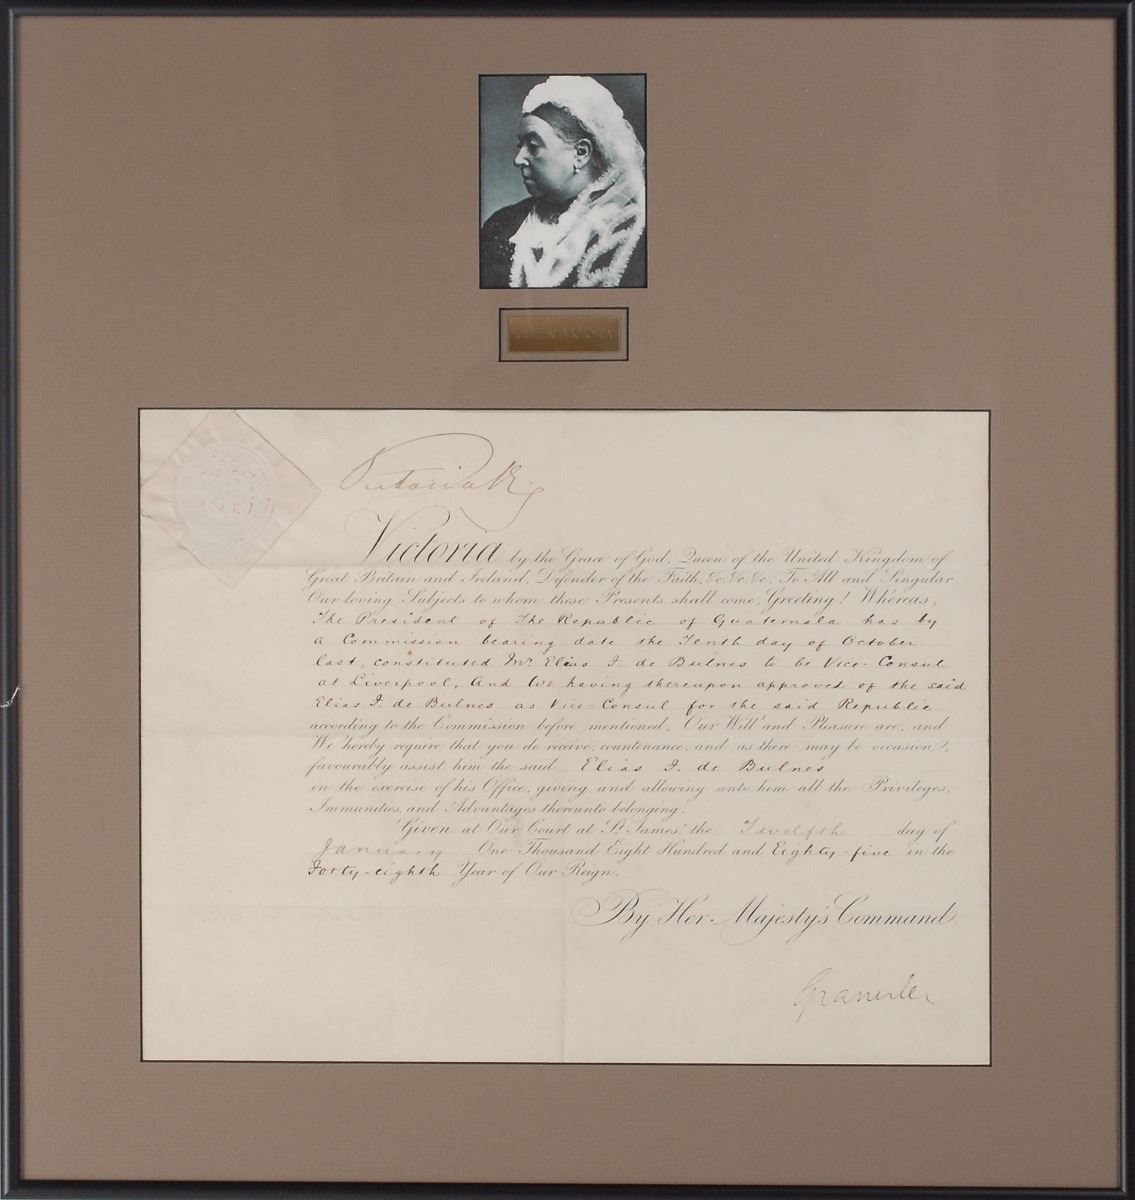 Victoria R
Victoria by the Grace of God, Queen of the United Kingdom of
Great Britain and Ireland, Defender of the Faith, &c. &c. &c. To All and Singular
Our loving Subjects to whom these Presents shall come, Greeting! Whereas,
The President of The Republic of Guatemala has by
a Commission bearing date the Tenth day of October
last, constituted Mr Elias J. de Bulnes to be Vice-Consul
at Liverpool, And We having thereupon approved of the said
Elias J. de Bulnes as Vice-Consul for the said Republic
according to the Commission before mentioned, Our Will and Pleasure are, and
We hereby require that you do receive, countenance, and as there may be occasion,
favourably assist him the said Elias J. de Bulnes
in the exercise of his Office, giving and allowing unto him all the Privileges,
Immunities, and Advantages thereunto belonging.
Given at Our Court at St. James', the Twelfth day of
January One Thousand Eight Hundred and Eighty-five in the
Forty-eighth Year of Our Reign.
By Her Majesty's Command
Granville